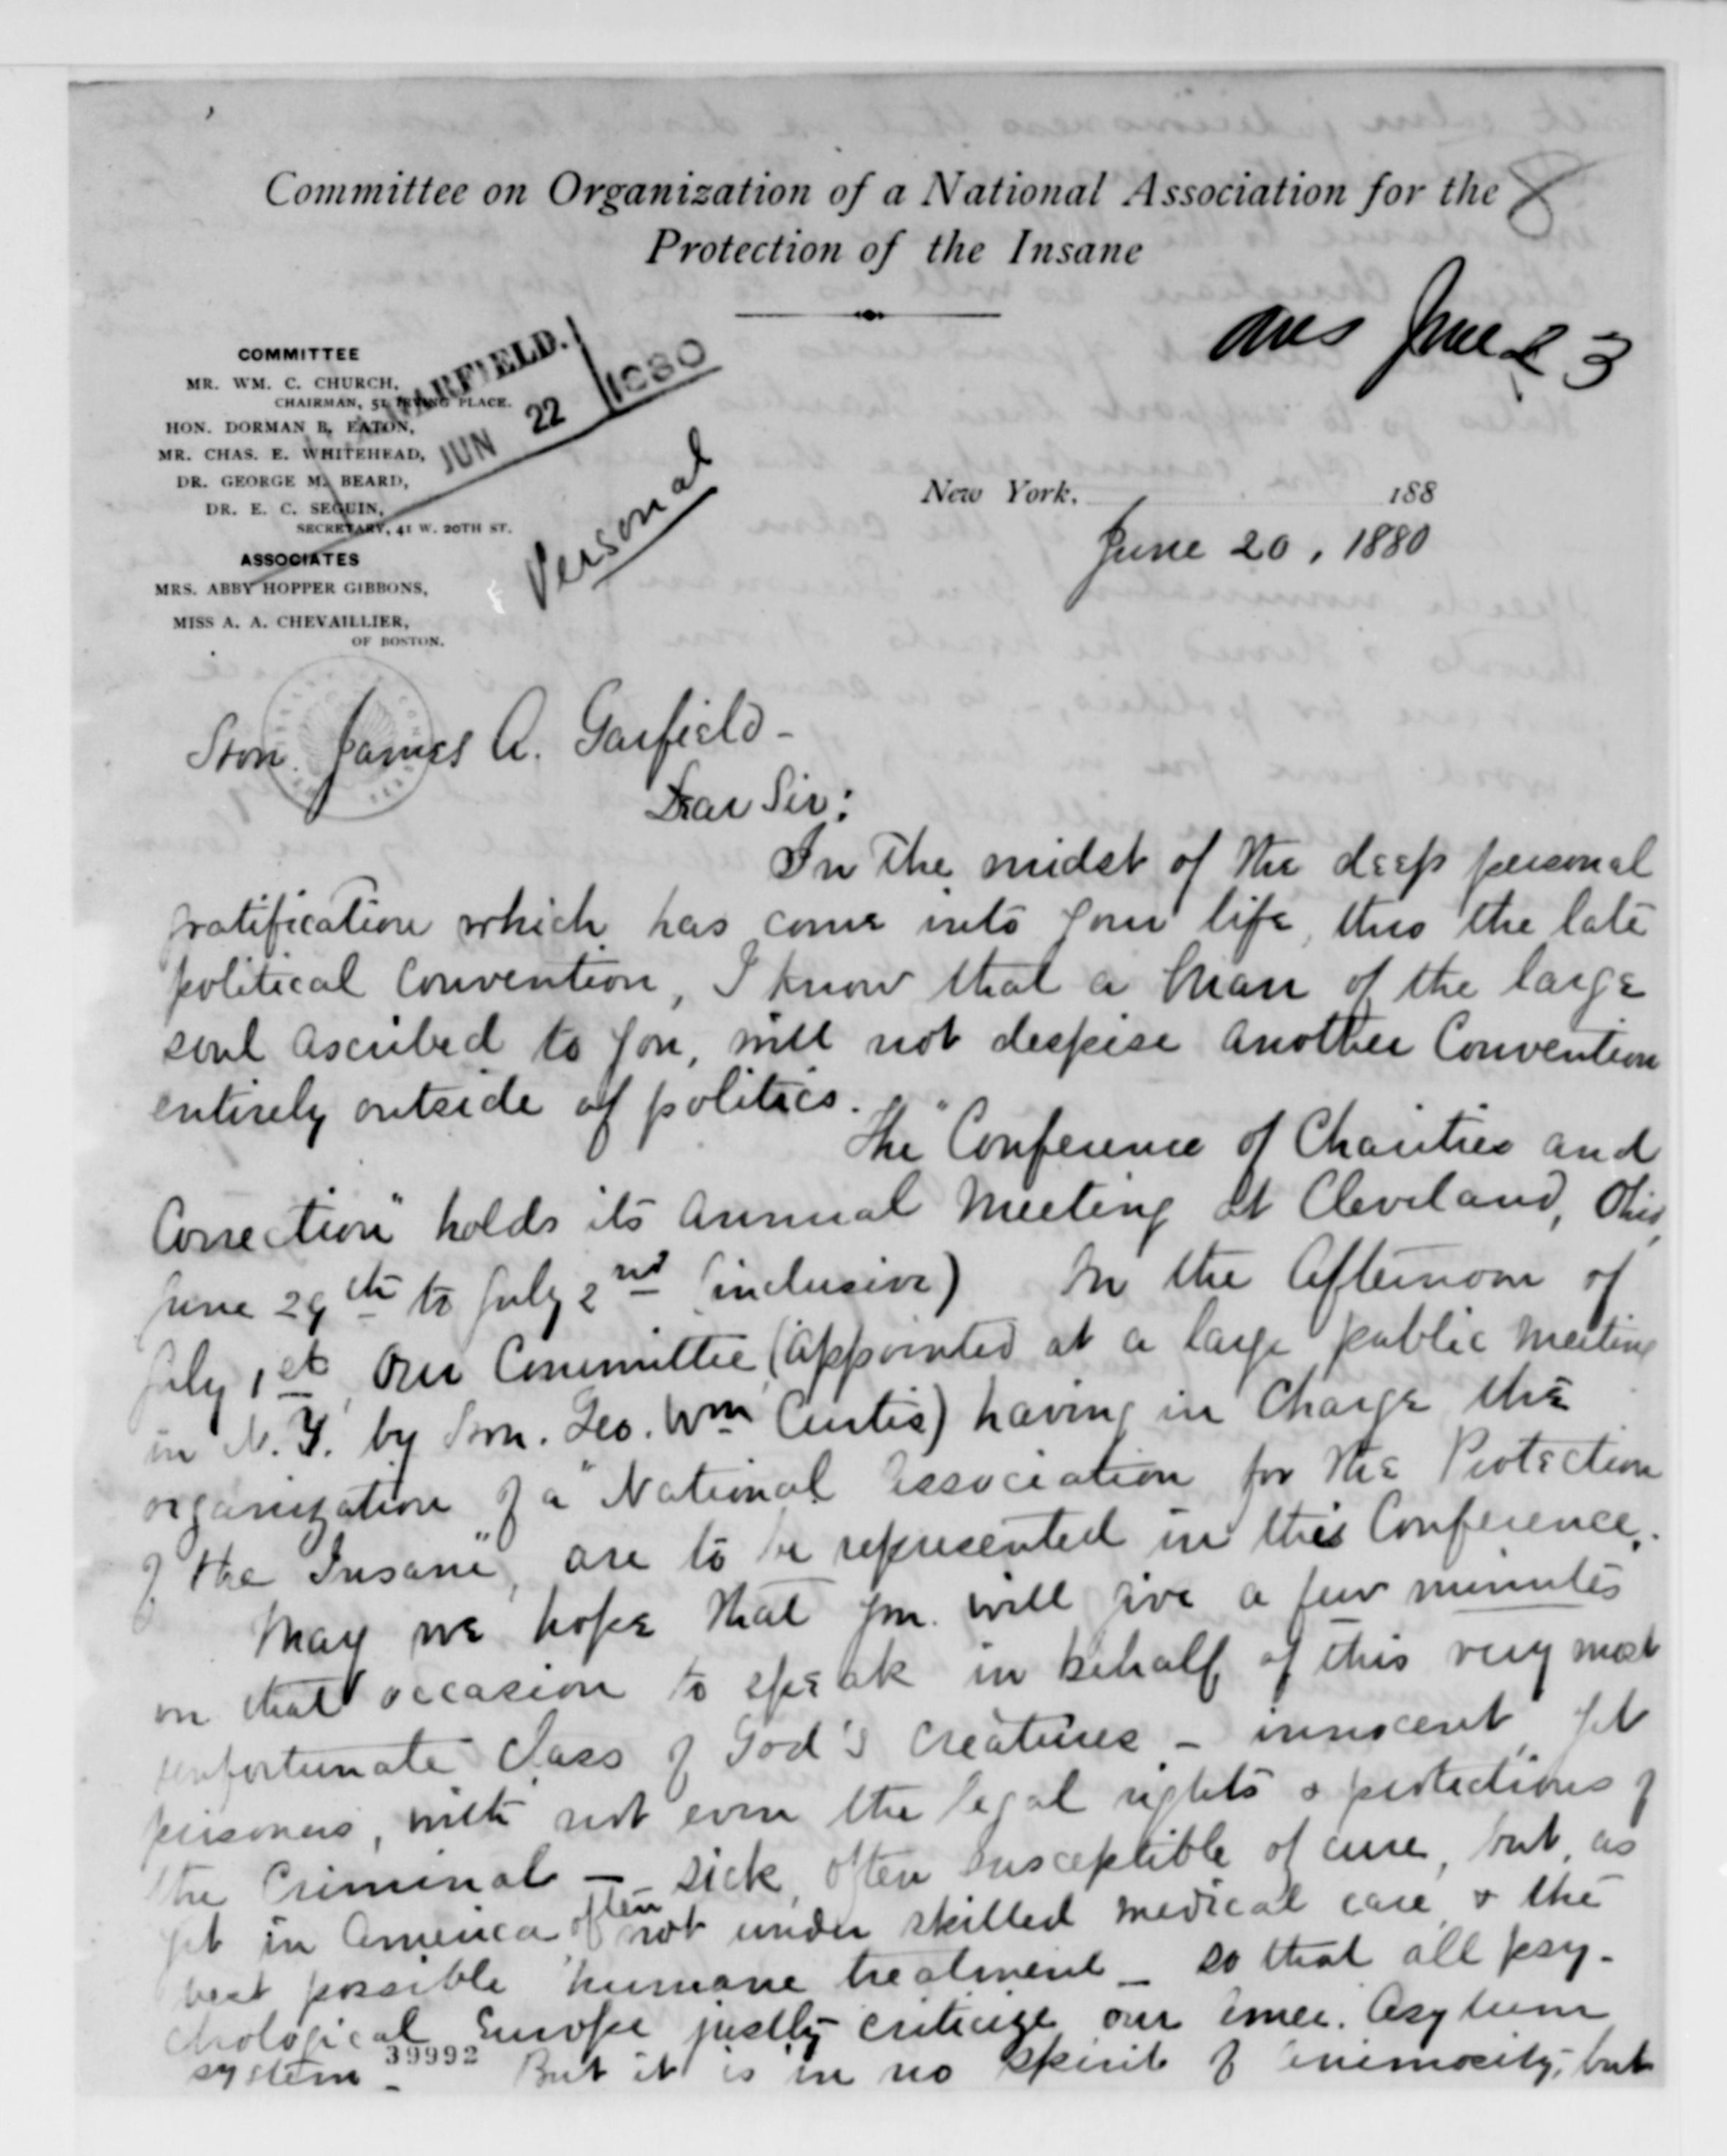 Committee on Organization of a National Association for the
8
Protection of the Insane
Ans June 23
COMMITTEE
MR. WM. C. CHURCH,
CHAIRMAN, 51 IRVING PLACE.
HON. DORMAN B. EATON,
MR. CHAS. E. WHITEHEAD,
DR. GEORGE M. BEARD,
DR. E. C. SEGUIN,
SECRETARY, 41 W. 20TH ST.
ASSOCIATES
MRS. ABBY HOPPER GIBBONS,
MISS A. A. CHEVAILLIER,
OF BOSTON.
GARFIELD.
JUN 22 1880
Personal
New York, 188
June 20, 1880
Hon. James A. Garfield -
Dear Sir:
In the midst of the deep personal
gratification which has come into your life, thro the late
political Convention, I know that a man of the large
soul ascribed to you, will not despise another Convention
entirely outside of politics.
The "Conference of Charities and
Correction" holds its annual meeting at Cleveland, Ohio,
June 29th to July 2nd (inclusive) In the afternoon of
July 1st, our Committee (appointed at a large public meeting
in N. Y. by Hon. Geo. Wm Curtis) having in charge the
organization of a "National Association for the Protection
of the Insane", are to be represented in this Conference.
May we hope that you will give a few minutes
on that occasion to speak in behalf of this very most
unfortunate class of God's creatures - innocent, yet
prisoners, with not even the legal rights & protections of
the criminal - sick, often susceptible of cure, but, as
yet in America often not under skilled medical care, & the
best possible humane treatment - so that all psy-
chological Europe justly criticize our Amer. Asylum
system - But it is in no spirit of animosity, but
39992